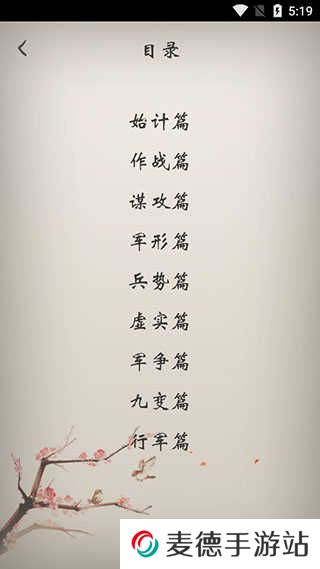 5:19
目录
始计篇
作战篇
谋攻篇
军形篇
兵势篇
虚实篇
军争篇
九变篇
行军篇
麦德手游站